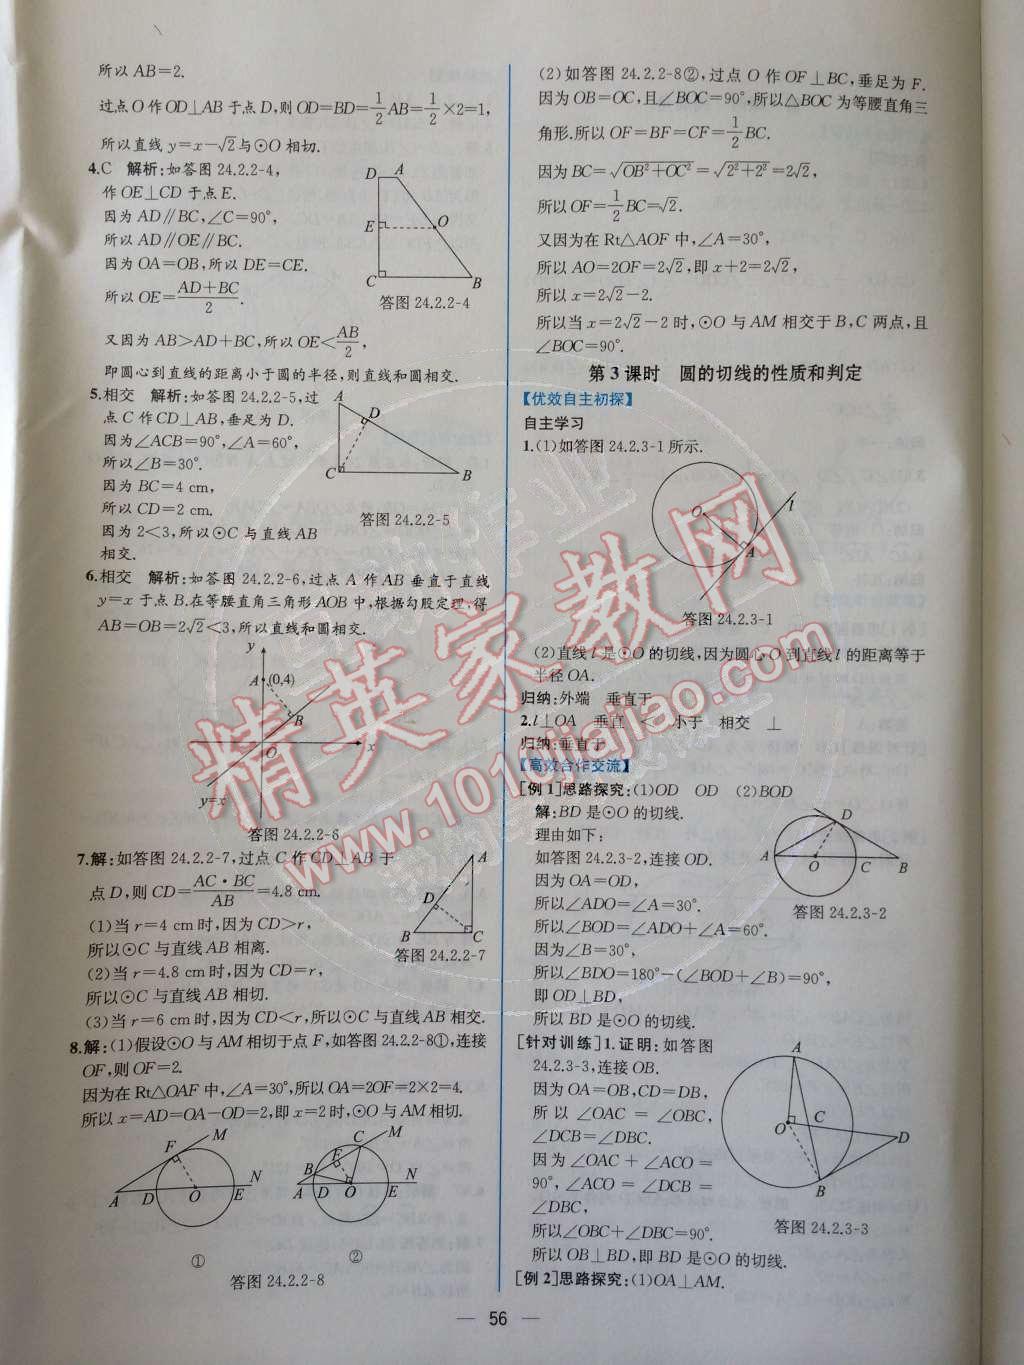 所以 AB=2.
过点 O 作 OD⊥AB 于点 D,则 OD=BD=1/2AB=1/2×2=1,
所以直线 y=x-√2与⊙O 相切.
4.C 解析:如答图 24.2.2-4,
作 OE⊥CD 于点 E.
因为 AD∥BC,∠C=90°,
所以 AD∥OE∥BC.
因为 OA=OB,所以 DE=CE.
所以 OE=(AD+BC)/2.
D A
E O
C B
答图 24.2.2-4
又因为 AB>AD+BC,所以 OE<AB/2,
即圆心到直线的距离小于圆的半径,则直线和圆相交.
5.相交 解析:如答图 24.2.2-5,过
点 C 作 CD⊥AB,垂足为 D.
因为∠ACB=90°,∠A=60°,
所以∠B=30°.
因为 BC=4 cm,
所以 CD=2 cm.
因为 2<3,所以⊙C 与直线 AB
相交.
A
D
C B
答图 24.2.2-5
6.相交 解析:如答图 24.2.2-6,过点 A 作 AB 垂直于直线
y=x 于点 B.在等腰直角三角形 AOB 中,根据勾股定理,得
AB=OB=2√2<3,所以直线和圆相交.
y
A (0,4)
B
O x
y=x
答图 24.2.2-6
7.解:如答图 24.2.2-7,过点 C 作 CD⊥AB 于
点 D,则 CD=AC·BC/AB=4.8 cm.
(1)当 r=4 cm 时,因为 CD>r,
所以⊙C 与直线 AB 相离.
(2)当 r=4.8 cm 时,因为 CD=r,
所以⊙C 与直线 AB 相切.
A
D
B C
答图 24.2.2-7
(3)当 r=6 cm 时,因为 CD<r,所以⊙C 与直线 AB 相交.
8.解:(1)假设⊙O 与 AM 相切于点 F,如答图 24.2.2-8①,连接
OF,则 OF=2.
因为在 Rt△OAF 中,∠A=30°,所以 OA=2OF=2×2=4.
所以 x=AD=OA-OD=2,即 x=2 时,⊙O 与 AM 相切.
F M
A D O E N
①
B F C M
A D O E N
②
答图 24.2.2-8
(2)如答图 24.2.2-8②,过点 O 作 OF⊥BC,垂足为 F.
因为 OB=OC,且∠BOC=90°,所以△BOC 为等腰直角三
角形.所以 OF=BF=CF=1/2BC.
因为 BC=√(OB²+OC²)=√(2²+2²)=2√2,
所以 OF=1/2BC=√2.
又因为在 Rt△AOF 中,∠A=30°,
所以 AO=2OF=2√2,即 x+2=2√2,
所以 x=2√2-2.
所以当 x=2√2-2 时,⊙O 与 AM 相交于 B,C 两点,且
∠BOC=90°.
第 3 课时 圆的切线的性质和判定
【优效自主初探】
自主学习
1.(1)如答图 24.2.3-1 所示.
O l
A
答图 24.2.3-1
(2)直线 l 是⊙O 的切线,因为圆心 O 到直线 l 的距离等于
半径 OA.
归纳:外端 垂直于
2.l⊥OA 垂直 < 小于 相交 ⊥
归纳:垂直于
【高效合作交流】
[例 1]思路探究:(1)OD OD (2)BOD
解:BD 是⊙O 的切线.
理由如下:
如答图 24.2.3-2,连接 OD.
因为 OA=OD,
所以∠ADO=∠A=30°.
所以∠BOD=∠ADO+∠A=60°.
因为∠B=30°,
所以∠BDO=180°-(∠BOD+∠B)=90°,
即 OD⊥BD,
所以 BD 是⊙O 的切线.
D
A O C B
答图 24.2.3-2
[针对训练]1.证明:如答图
24.2.3-3,连接 OB.
因为 OA=OB,CD=DB,
所以∠OAC=∠OBC,
∠DCB=∠DBC.
因为∠OAC+∠ACO=
90°,∠ACO=∠DCB=
∠DBC,
所以∠OBC+∠DBC=90°.
所以 OB⊥BD,即 BD 是⊙O 的切线.
A
O C D
B
答图 24.2.3-3
[例 2]思路探究:(1)OA⊥AM.
— 56 —
精英家教网
www.1010jiajiao.com